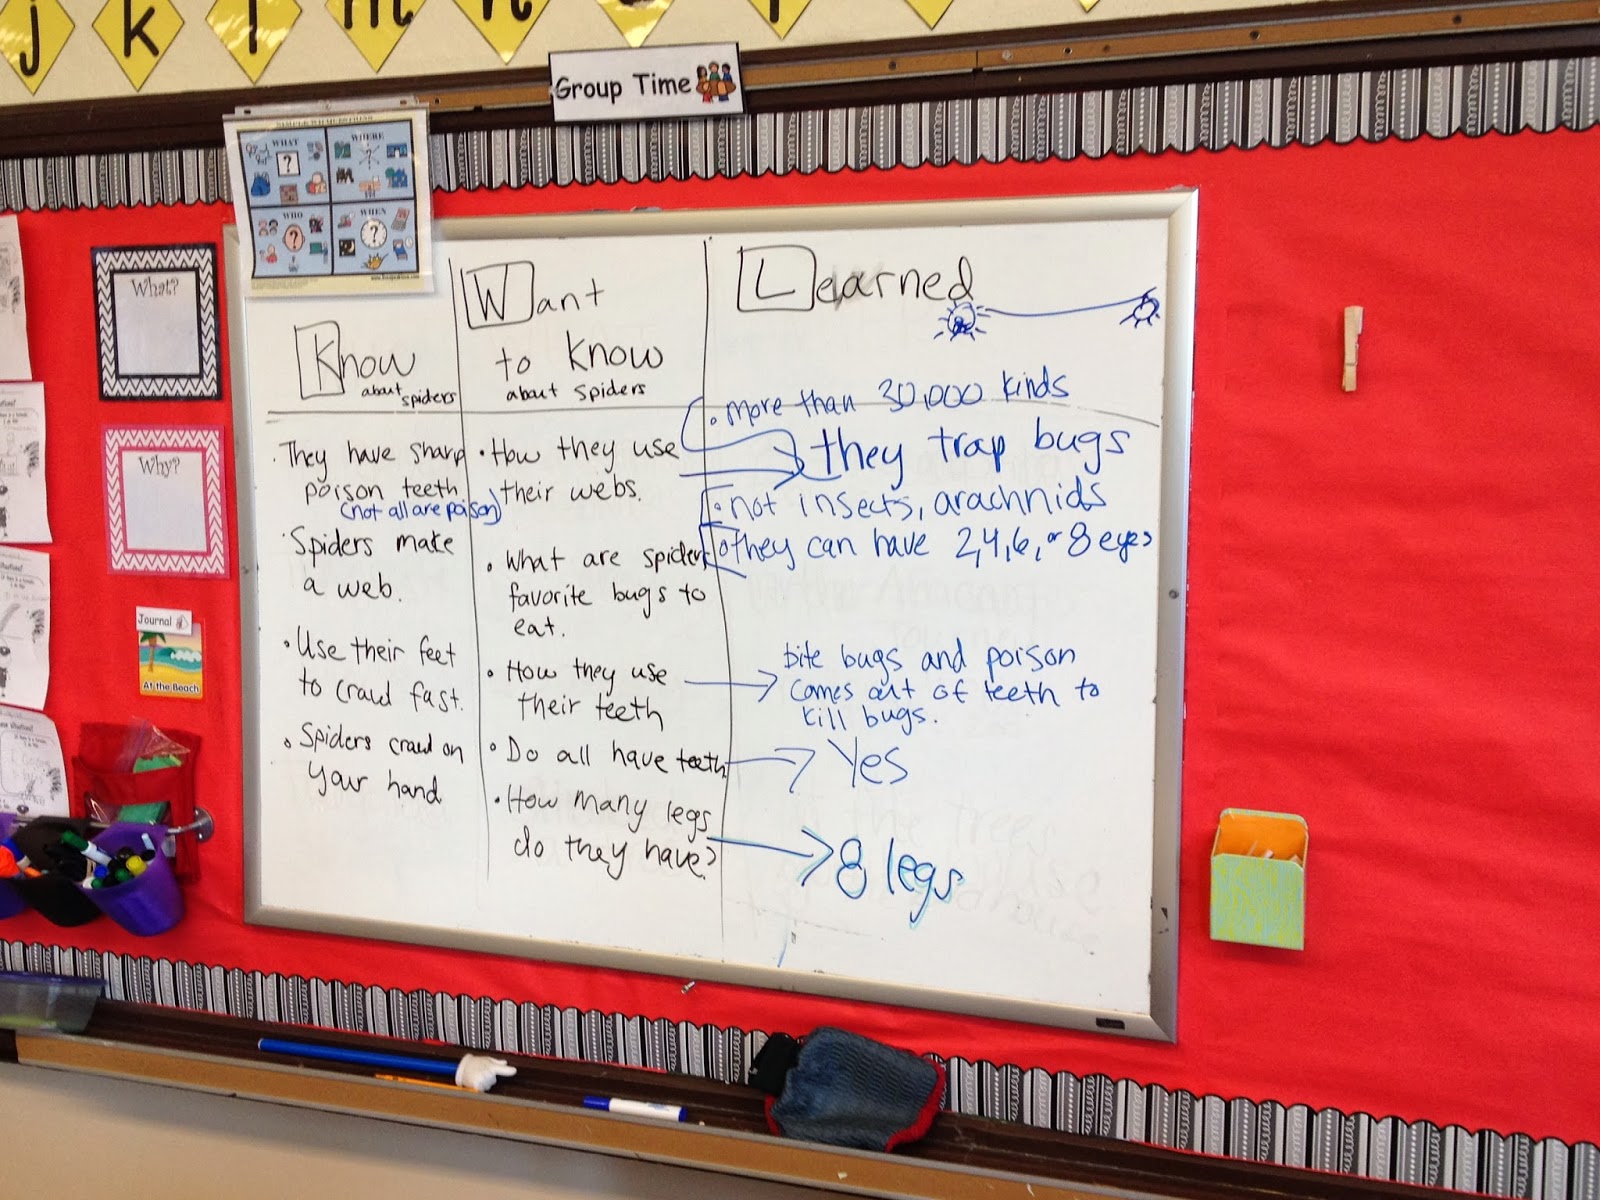 j k l m n
Group Time
WHAT
WHERE
WHO
WHEN
What?
Why?
Journal
At the Beach
Know
about spiders
They have sharp
poison teeth
(not all are poison)
Spiders make
a web.
Use their feet
to crawl fast.
Spiders crawl on
your hand
Want
to know
about spiders
How they use
their webs.
What are spiders
favorite bugs to
eat.
How they use
their teeth
Do all have teeth
How many legs
do they have?
Learned
more than 30,000 kinds
they trap bugs
not insects, arachnids
they can have 2,4,6, or 8 eyes
bite bugs and poison
comes out of teeth to
kill bugs.
Yes
8 legs